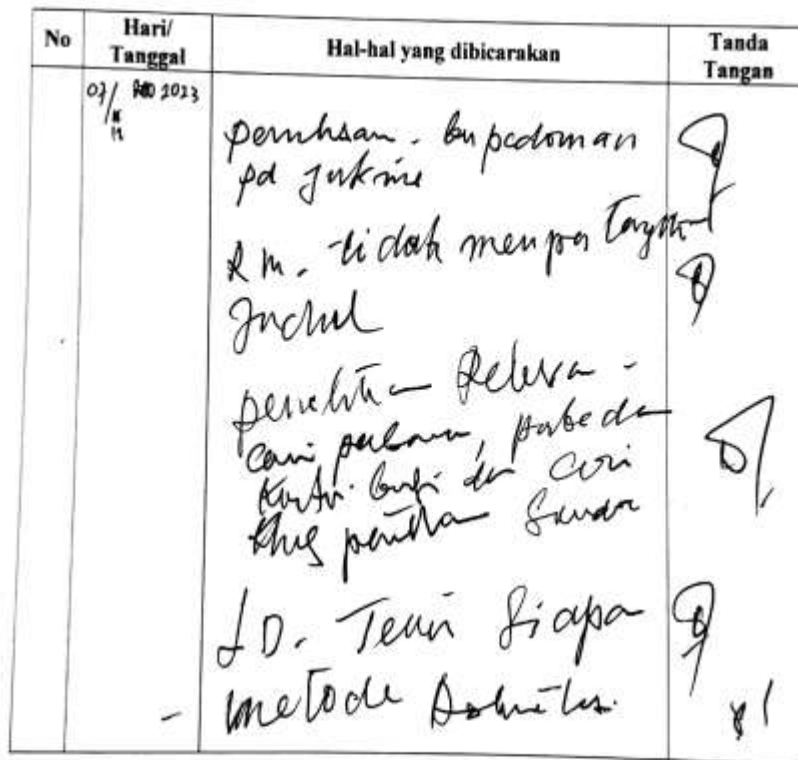 No
Hari/
Tanggal
Hal-hal yang dibicarakan
Tanda
Tangan
07/ 2023
12
penulisan. berpedoman
pd juknis
RM. tidak
Judul
penelitian Releva
cari persamaan, perbeda
Kontri busi dan cari
khas penelitian
LD. Teori Siapa
metode